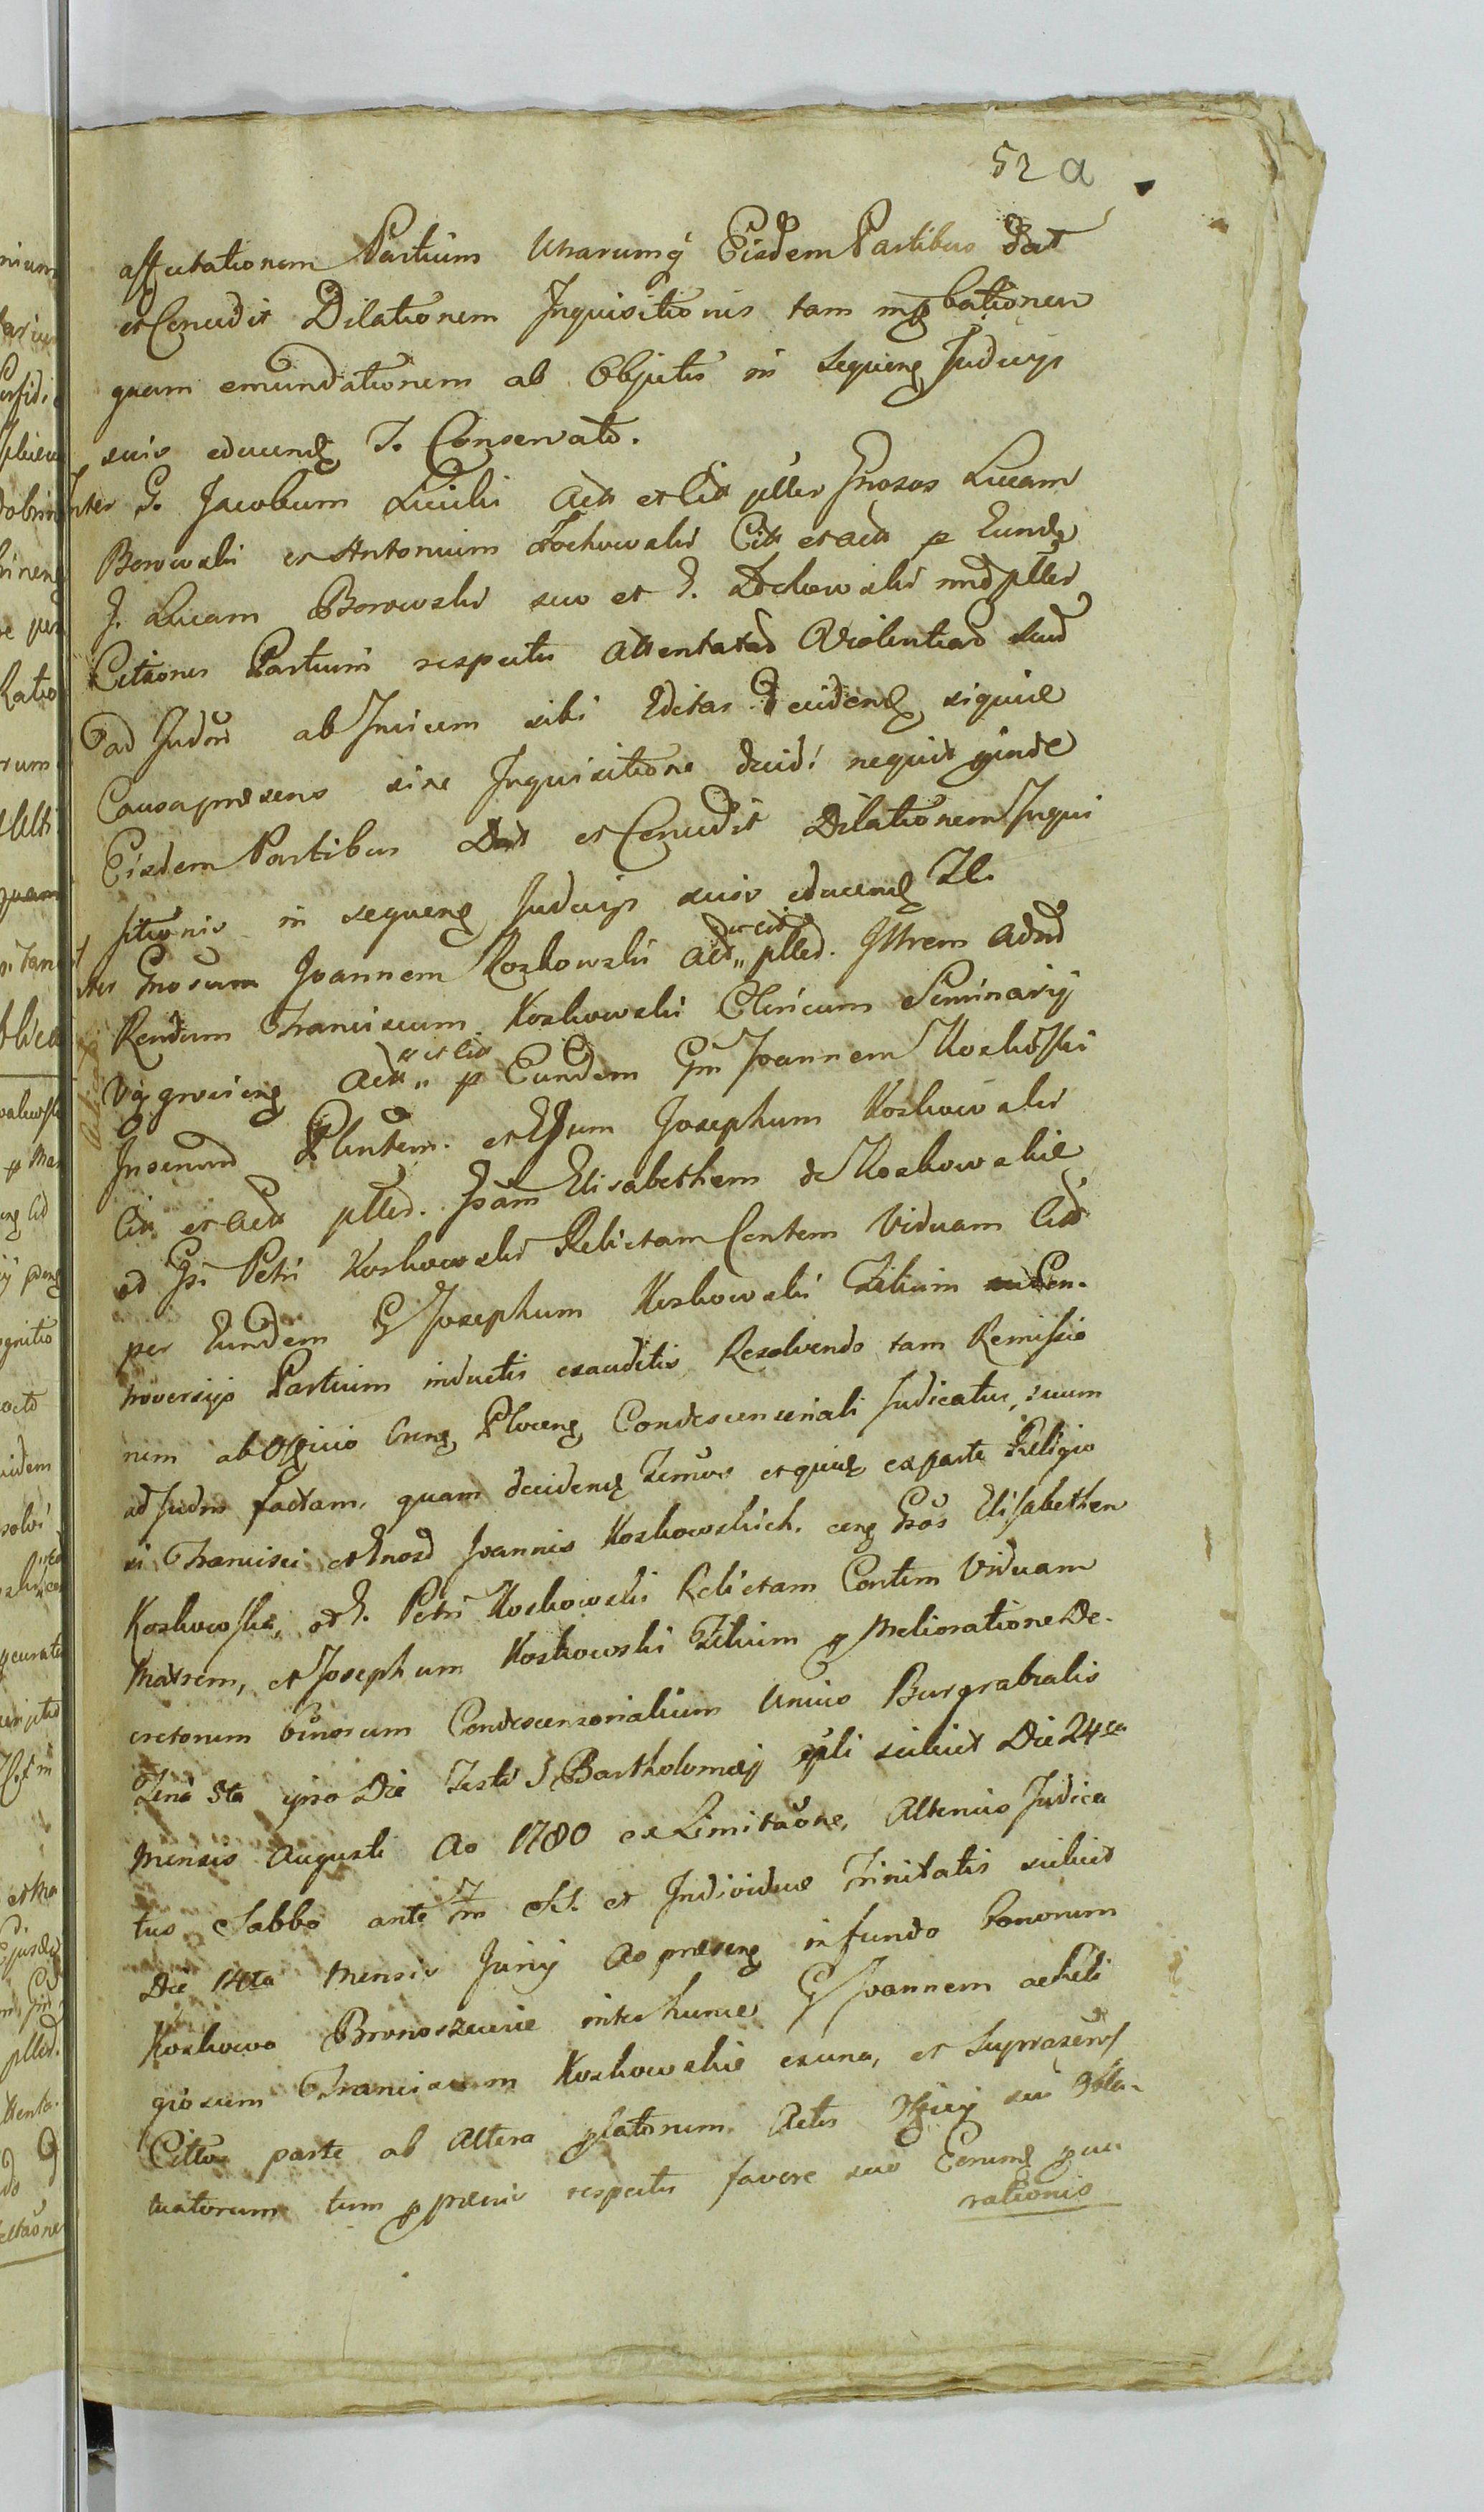 52 a
affectationem Partium Utrarumq Eisdem Partibus Dat
et Concedit Dilationem Inquisitionis tam in pbationem
quam emundationem ab Objectis in sequeng Judicys
suis educend T. Conservato.
Inter G. Jacobum Actt et Citt pller Gnosos Lucam
Borowski et Antonium Citt et actt p Eund
G. Lucam Borowski suo et G. nnd pller
Citaones Partium respectu attentatar Violentiar sua
ad Judm ab Invicem sibi Editas Decidend, siquid
Causa præsens sine Inquisitione decidi nequit proinde
Eisdem Partibus Dat et Concedit Dilationem Inqui
sitionis in sequeng Judicys suis educend Tl.
Inter Gnosum Joannem Koskowski Act et Cit plled. Illrem Adnd
Rendum Franciscum Koskowski Clericum Seminarij
Actt et Citt p Eundem Gm Joannem Koskowski
Plentem. et Gsum Josephum Koskowski
Citt et Actt plled. Gsam Elisabetham de Koskowskie
od Gsi Petri Koskowski Relictam Contem Viduam Citt
per Eundem G Josephum Koskowski Filium Con-
troversijs Partium inductis exauditis Resolvendo tam Remissio
nem ab Officio Creng Ploceng Condescensoriali Judicatus, suum
ad Judm factam, quam decidend Termos et quid ex parte Religio
si Francisci et Gnosi Joannis Koskowskich. ceng Gsos Elisabetham
Koskowska, od G. Petri Koskowski Relictam Contem Viduam
Matrem, et Josephum Koskowski Filium p Melioratione De-
cretorum binorum Condescensorialium Unius Burgrabialis
Feria 5ta ipso Die Festi S Bartholomæj Apli scilicet Die 24ta
Mensis Augusti Ao 1780 ex Limitaone, Alterius Judica
tus Sabbo ante Fm SS. et Individuæ Trinitatis scilicet
Die 14ta Mensis Junij Ao præseng in fundo bonorum
Koskowo Bronoszewie inter hunc G Joannem ac Reli
giosum Franciscum Koskowskie ex una, et Supraseno
Cittos parte ab Altera platorum Actis Officij sui Obla-
tuatorum tum p præmis respectu favore suo Eorund pcu
rationis